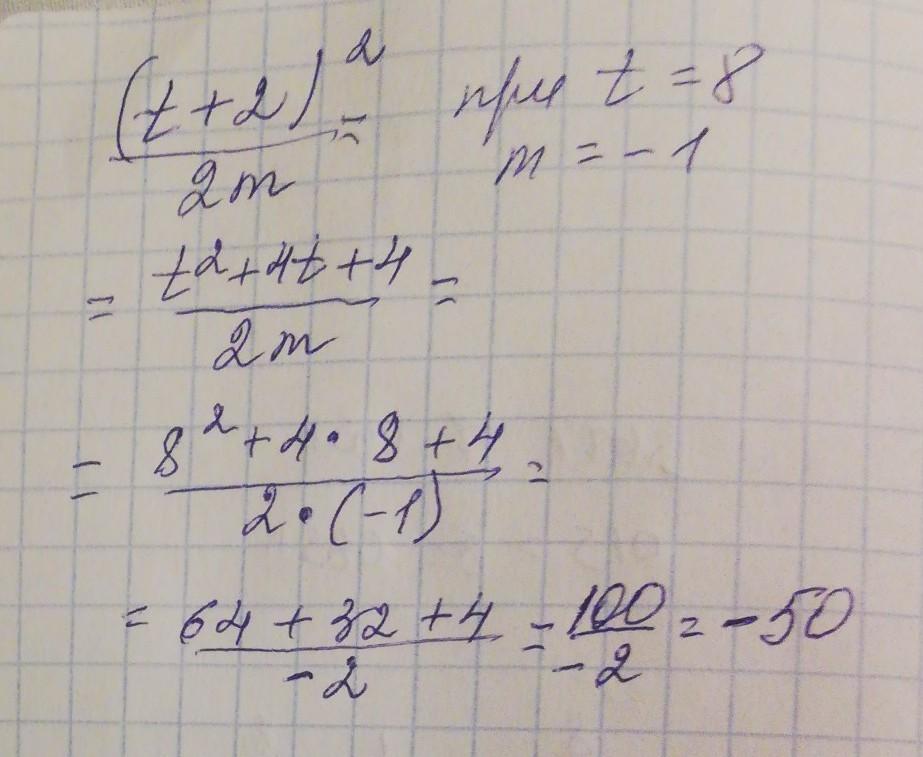 (t+2)² / 2m = при t = 8
m = -1
= t²+4t+4 / 2m =
= 8²+4·8+4 / 2·(-1) =
= 64+32+4 / -2 = 100 / -2 = -50